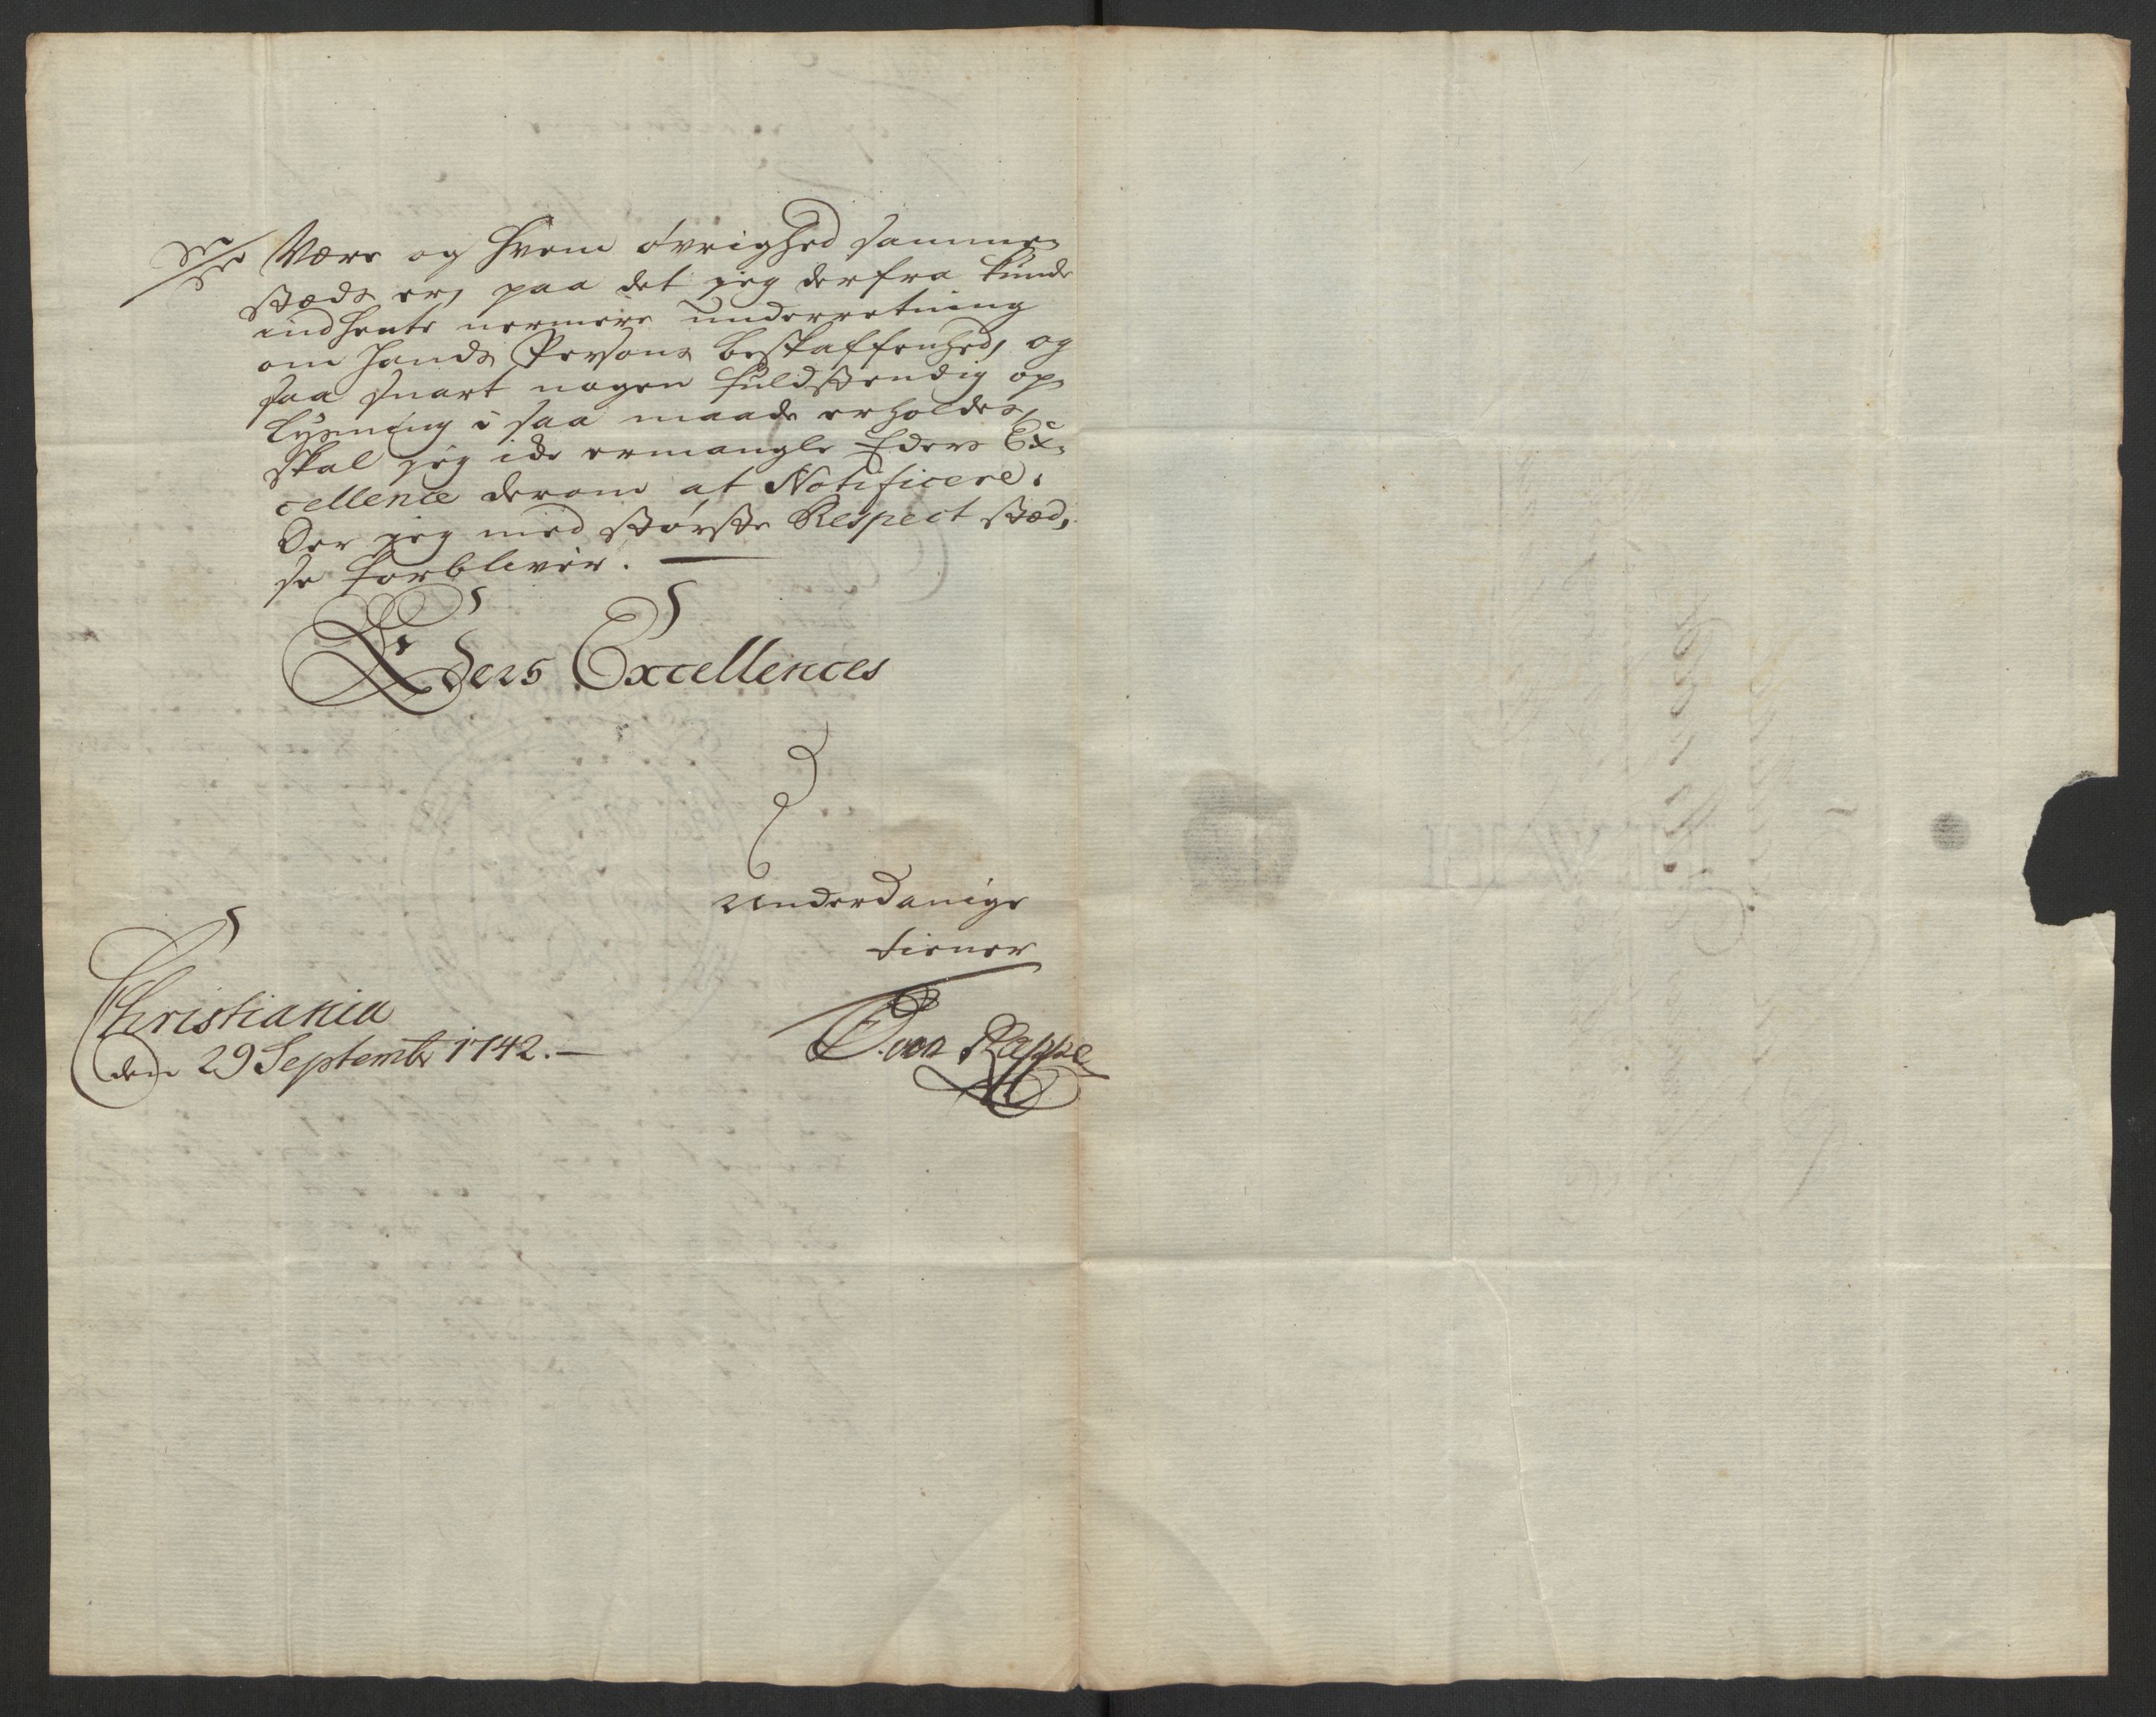 Være og hvem øvrighed samme-
stæds er, paa det jeg derfra kunde
indhente nermere underretning
om hands Persons beskaffenhed, og
saa snart nogen fuldstendig op-
lysning i saa maade erholdes,
skal jeg icke ermangle Eders Ex-
cellence derom at Notificere.
Der jeg med største Respect stæd-
se forbliver. —
Eders Excellences
Underdanige
tiener
Christiania
den 29 Septembr 1742. —
von Rappe